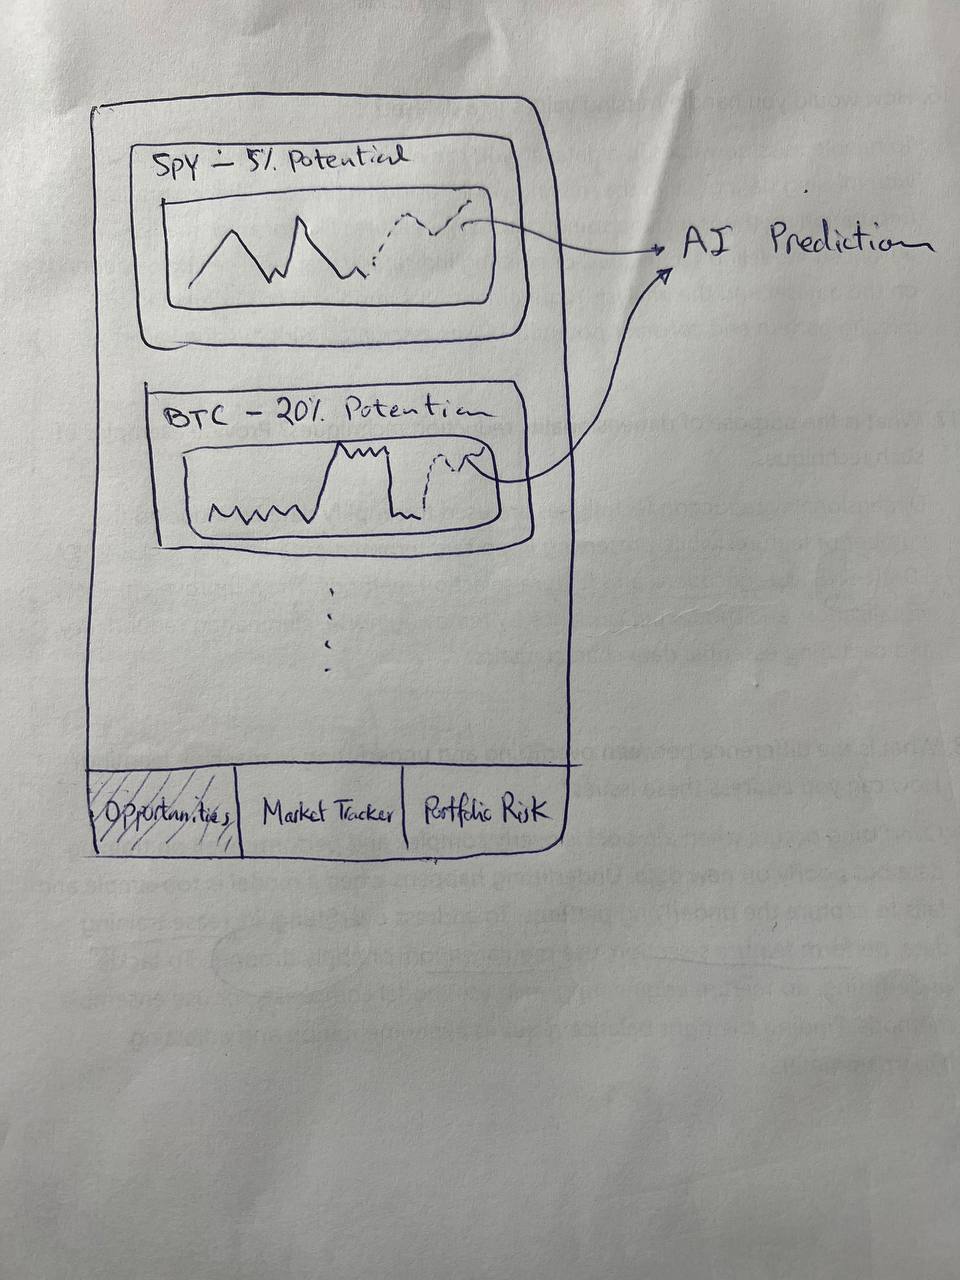 SPY - 5% Potential
AI Prediction
BTC - 20% Potential
Opportunities
Market Tracker
Portfolio Risk